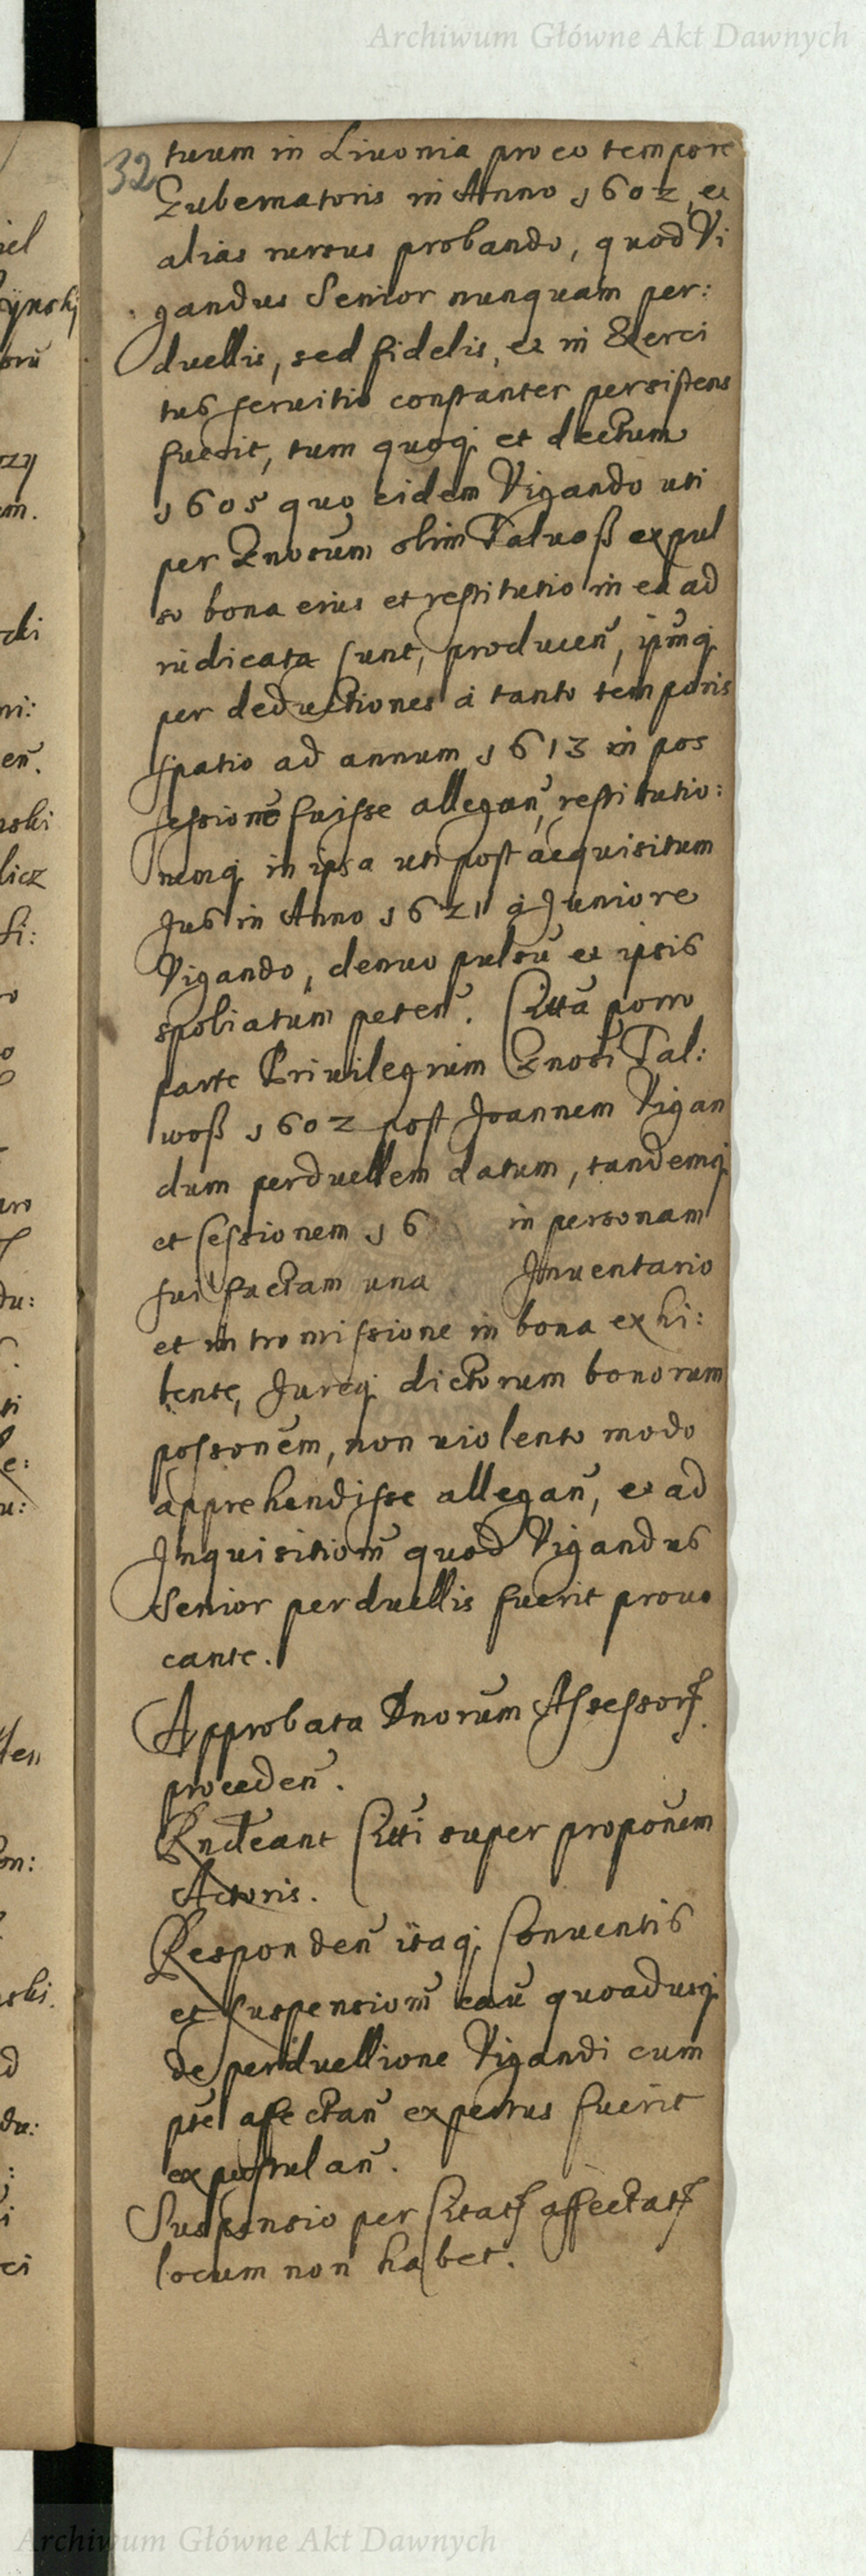 Archiwum Główne Akt Dawnych
32
tuum in Liuonia pro eo tempore
Gubernatoris in Anno 1602, et
alias rursus probando, quod Vi
gandus Senior nunquam per:
duellis, sed fidelis, et in Exerci
tus seruitio constanter persistens
fuerit, tum quoq; et dectum
1605 quo eidem Vigando uti
per Gnosum olim Talwoß expul
so bona eius et restitutio in ea ad
iudicata sunt, producen̄, ipm̄q;
per deductiones à tanto temporis
spatio ad annum 1613 in pos
sessionē fuisse allegan̄, restitutio:
nemq; in ipsa uti post acquisitum
Jus in Anno 1621 à Juniore
Vigando, denuo pulsū et ipsis
spoliatum peten̄. Citta porro
parte Priuilegium Gnosi Tal:
woß 1602 post Joannem Vigan
dum perduellem datum, tandemq;
et Cessionem 16 in personam
sui factam una Inuentario
et intromissione in bona exhi:
bente, Jureq; dictorum bonorum
possonem, non uiolento modo
apprehendisse allegan̄, et ad
Inquisitiom̄ quod Vigandus
Senior perduellis fuerit prouo
cante.
Approbata Dnorum Assessor
proceden̄.
Rndeant Citti super proponem
Actoris.
Responden̄ itaq; Conuentis
et suspensiom̄ cau̅ quoadusq;
de perduellione Vigandi cum
pte afectan̄ expertus fuerit
expostulan̄.
Suspensio per Citat affectat
locum non habet.
Archiwum Główne Akt Dawnych